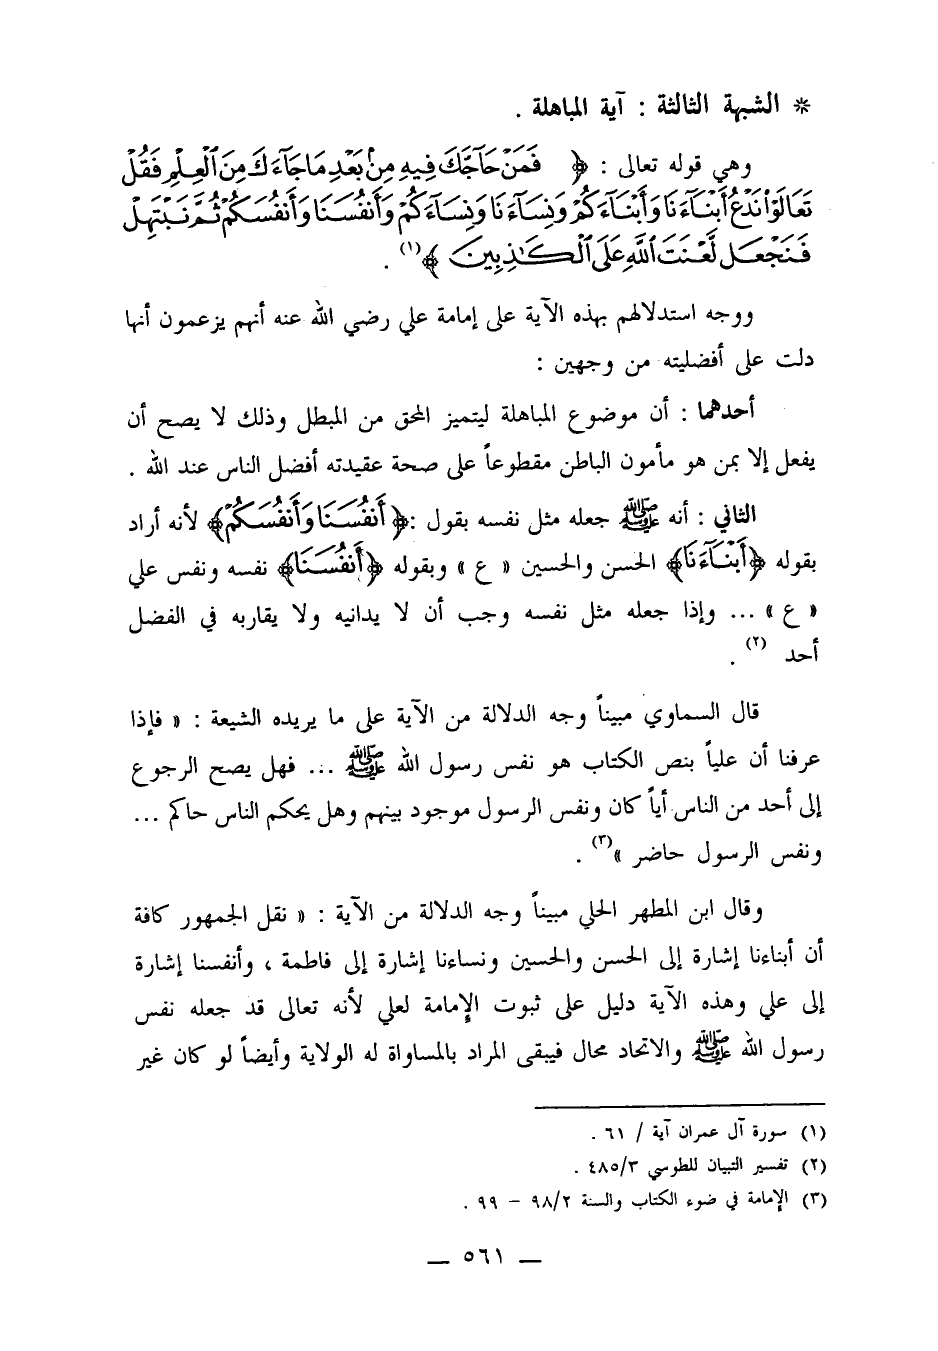 * الشبهة الثالثة : آية المباهلة .
وهي قوله تعالى : ﴿ فَمَنْ حَآجَّكَ فِيهِ مِنۢ بَعْدِ مَا جَآءَكَ مِنَ ٱلْعِلْمِ فَقُلْ
تَعَالَوْا۟ نَدْعُ أَبْنَآءَنَا وَأَبْنَآءَكُمْ وَنِسَآءَنَا وَنِسَآءَكُمْ وَأَنفُسَنَا وَأَنفُسَكُمْ ثُمَّ نَبْتَهِلْ
فَنَجْعَل لَّعْنَتَ ٱللَّهِ عَلَى ٱلْكَـٰذِبِينَ ﴾(١) .
ووجه استدلالهم بهذه الآية على إمامة علي رضي الله عنه أنهم يزعمون أنها
دلت على أفضليته من وجهين :
أحدهما : أن موضوع المباهلة ليتميز المحق من المبطل وذلك لا يصح أن
يفعل إلا بمن هو مأمون الباطن مقطوعاً على صحة عقيدته أفضل الناس عند الله .
الثاني : أنه ﷺ جعله مثل نفسه بقول :﴿أَنفُسَنَا وَأَنفُسَكُمْ﴾ لأنه أراد
بقوله ﴿أَبْنَآءَنَا﴾ الحسن والحسين « ع » وبقوله ﴿أَنفُسَنَا﴾ نفسه ونفس علي
« ع » ... وإذا جعله مثل نفسه وجب أن لا يدانيه ولا يقاربه في الفضل
أحد (٢) .
قال السماوي مبيناً وجه الدلالة من الآية على ما يريده الشيعة : « فإذا
عرفنا أن علياً بنص الكتاب هو نفس رسول الله ﷺ ... فهل يصح الرجوع
إلى أحد من الناس أياً كان ونفس الرسول موجود بينهم وهل يحكم الناس حاكم ...
ونفس الرسول حاضر »(٣) .
وقال ابن المطهر الحلي مبيناً وجه الدلالة من الآية : « نقل الجمهور كافة
أن أبناءنا إشارة إلى الحسن والحسين ونساءنا إشارة إلى فاطمة ، وأنفسنا إشارة
إلى علي وهذه الآية دليل على ثبوت الإمامة لعلي لأنه تعالى قد جعله نفس
رسول الله ﷺ والاتحاد محال فيبقى المراد بالمساواة له الولاية وأيضاً لو كان غير
(١) سورة آل عمران آية / ٦١ .
(٢) تفسير التبيان للطوسي ٤٨٥/٣ .
(٣) الإمامة في ضوء الكتاب والسنة ٩٨/٢ – ٩٩ .
— ٥٦١ —